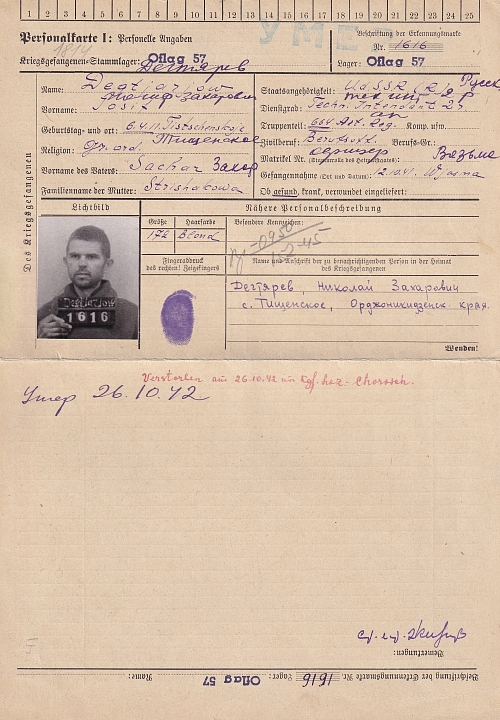 1 2 3 4 5 6 7 8 9 10 11 12 13 14 15 16 17 18 19 20 21 22 23 24 25
Personalkarte I: Personelle Angaben
УМЕ
Beschriftung der Erkennungsmarke
Nr. 1616
Kriegsgefangenen-Stammlager: Oflag 57
Lager: Oflag 57
Дегтярев
Des Kriegsgefangenen
Name: Degtiarow
Захарович
Vorname: Iosif
Geburtstag und -ort: 6.4.11. Tistschenskoje
Тищенское
Religion: Gr. ord.
Vorname des Vaters: Sachar Захар
Familienname der Mutter: Strishakowa
Staatsangehörigkeit: UdSSR
Русск
Dienstgrad: Techn. Intendant 2r.
Truppenteil: 664 Art. Reg. Komp. usw.
Zivilberuf: Berufsoff. Berufs-Gr.:
Matrikel Nr. (Stammrolle des Heimatstaates):
Вязьма
Gefangennahme (Ort und Datum): 12.10.41. Wjasma
Ob gesund, krank, verwundet eingeliefert:
Lichtbild
Nähere Personalbeschreibung
Größe Haarfarbe Besondere Kennzeichen:
172 Blond
Fingerabdruck
des rechten! Zeigefingers
Name und Anschrift der zu benachrichtigenden Person in der Heimat
des Kriegsgefangenen
Дегтярев, Николай Захарович
с. Тищенское, Орджоникидзенск. края.
Degtiarow
1616
Wenden!
Verstorben am 26.10.42 im Kgf. Laz. Choroszcz.
Умер 26.10.42
Bemerkungen:
Beschriftung der Erkennungsmarke Nr. 1616 Lager: Oflag 57 Name: